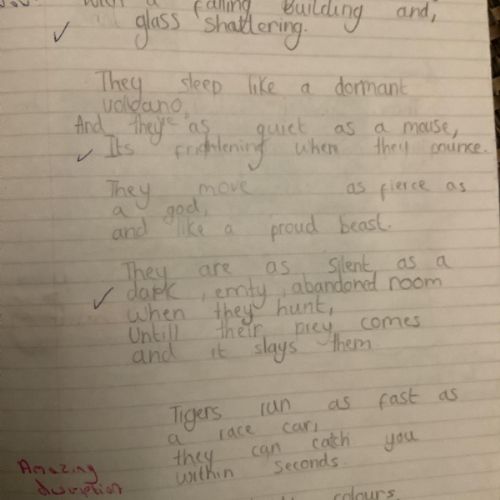 with a falling building and,
glass shattering.
They sleep like a dormant
volcano,
And they're as quiet as a mouse,
Its frightening when they pounce.
They move as fierce as
a god,
and like a proud beast.
They are as silent as a
dark , emty , abandoned room
when they hunt,
Untill their prey comes
and it slays them.
Tigers run as fast as
a race car,
they can catch you
within seconds.
Amazing
colours